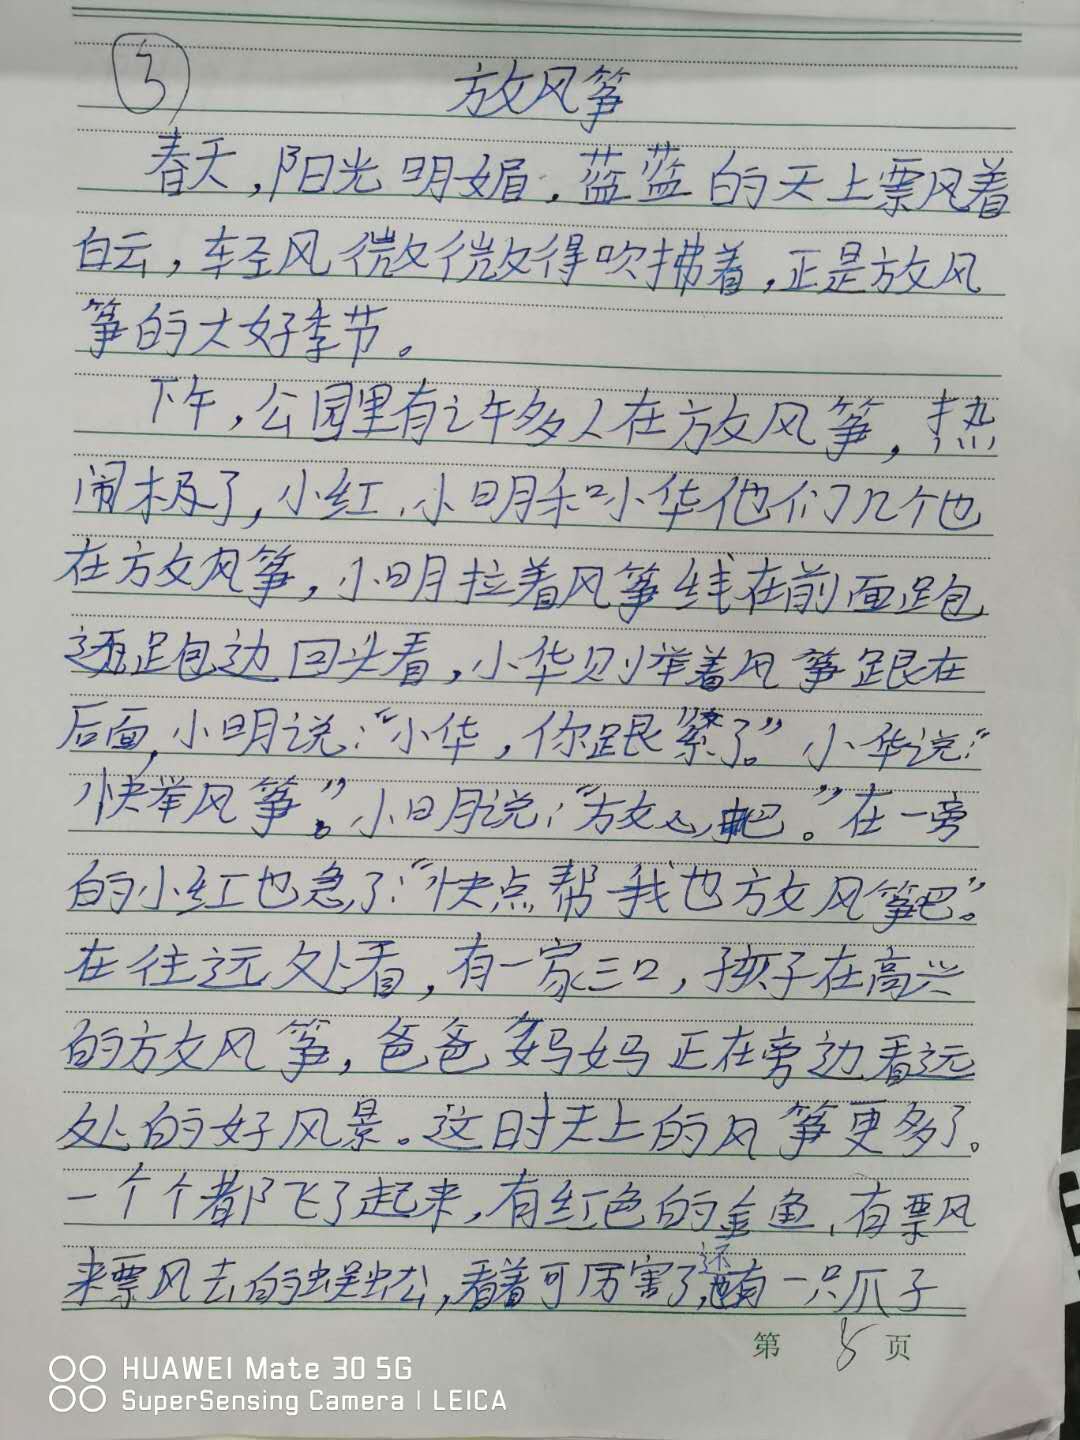 3
放风筝
春天，阳光明媚，蓝蓝的天上飘着
白云，轻风微微得吹拂着，正是放风
筝的大好季节。
下午，公园里有许多人在放风筝，热
闹极了，小红、小明和小华他们几个也
在放风筝，小明拉着风筝线在前面跑
边跑边回头看，小华则举着风筝跟在
后面，小明说：“小华，你跟紧了。”小华说：“
快举风筝。”小明说：“放心吧。”在一旁
的小红也急了：“快点帮我也放风筝吧”。
在往远处看，有一家三口，孩子在高兴
的放风筝，爸爸妈妈正在旁边看远
处的好风景。这时天上的风筝更多了。
一个个都飞了起来，有红色的金鱼、有飘
来飘去的蜈蚣，看着可厉害了，还有一只爪子
第 5 页
HUAWEI Mate 30 5G
SuperSensing Camera | LEICA